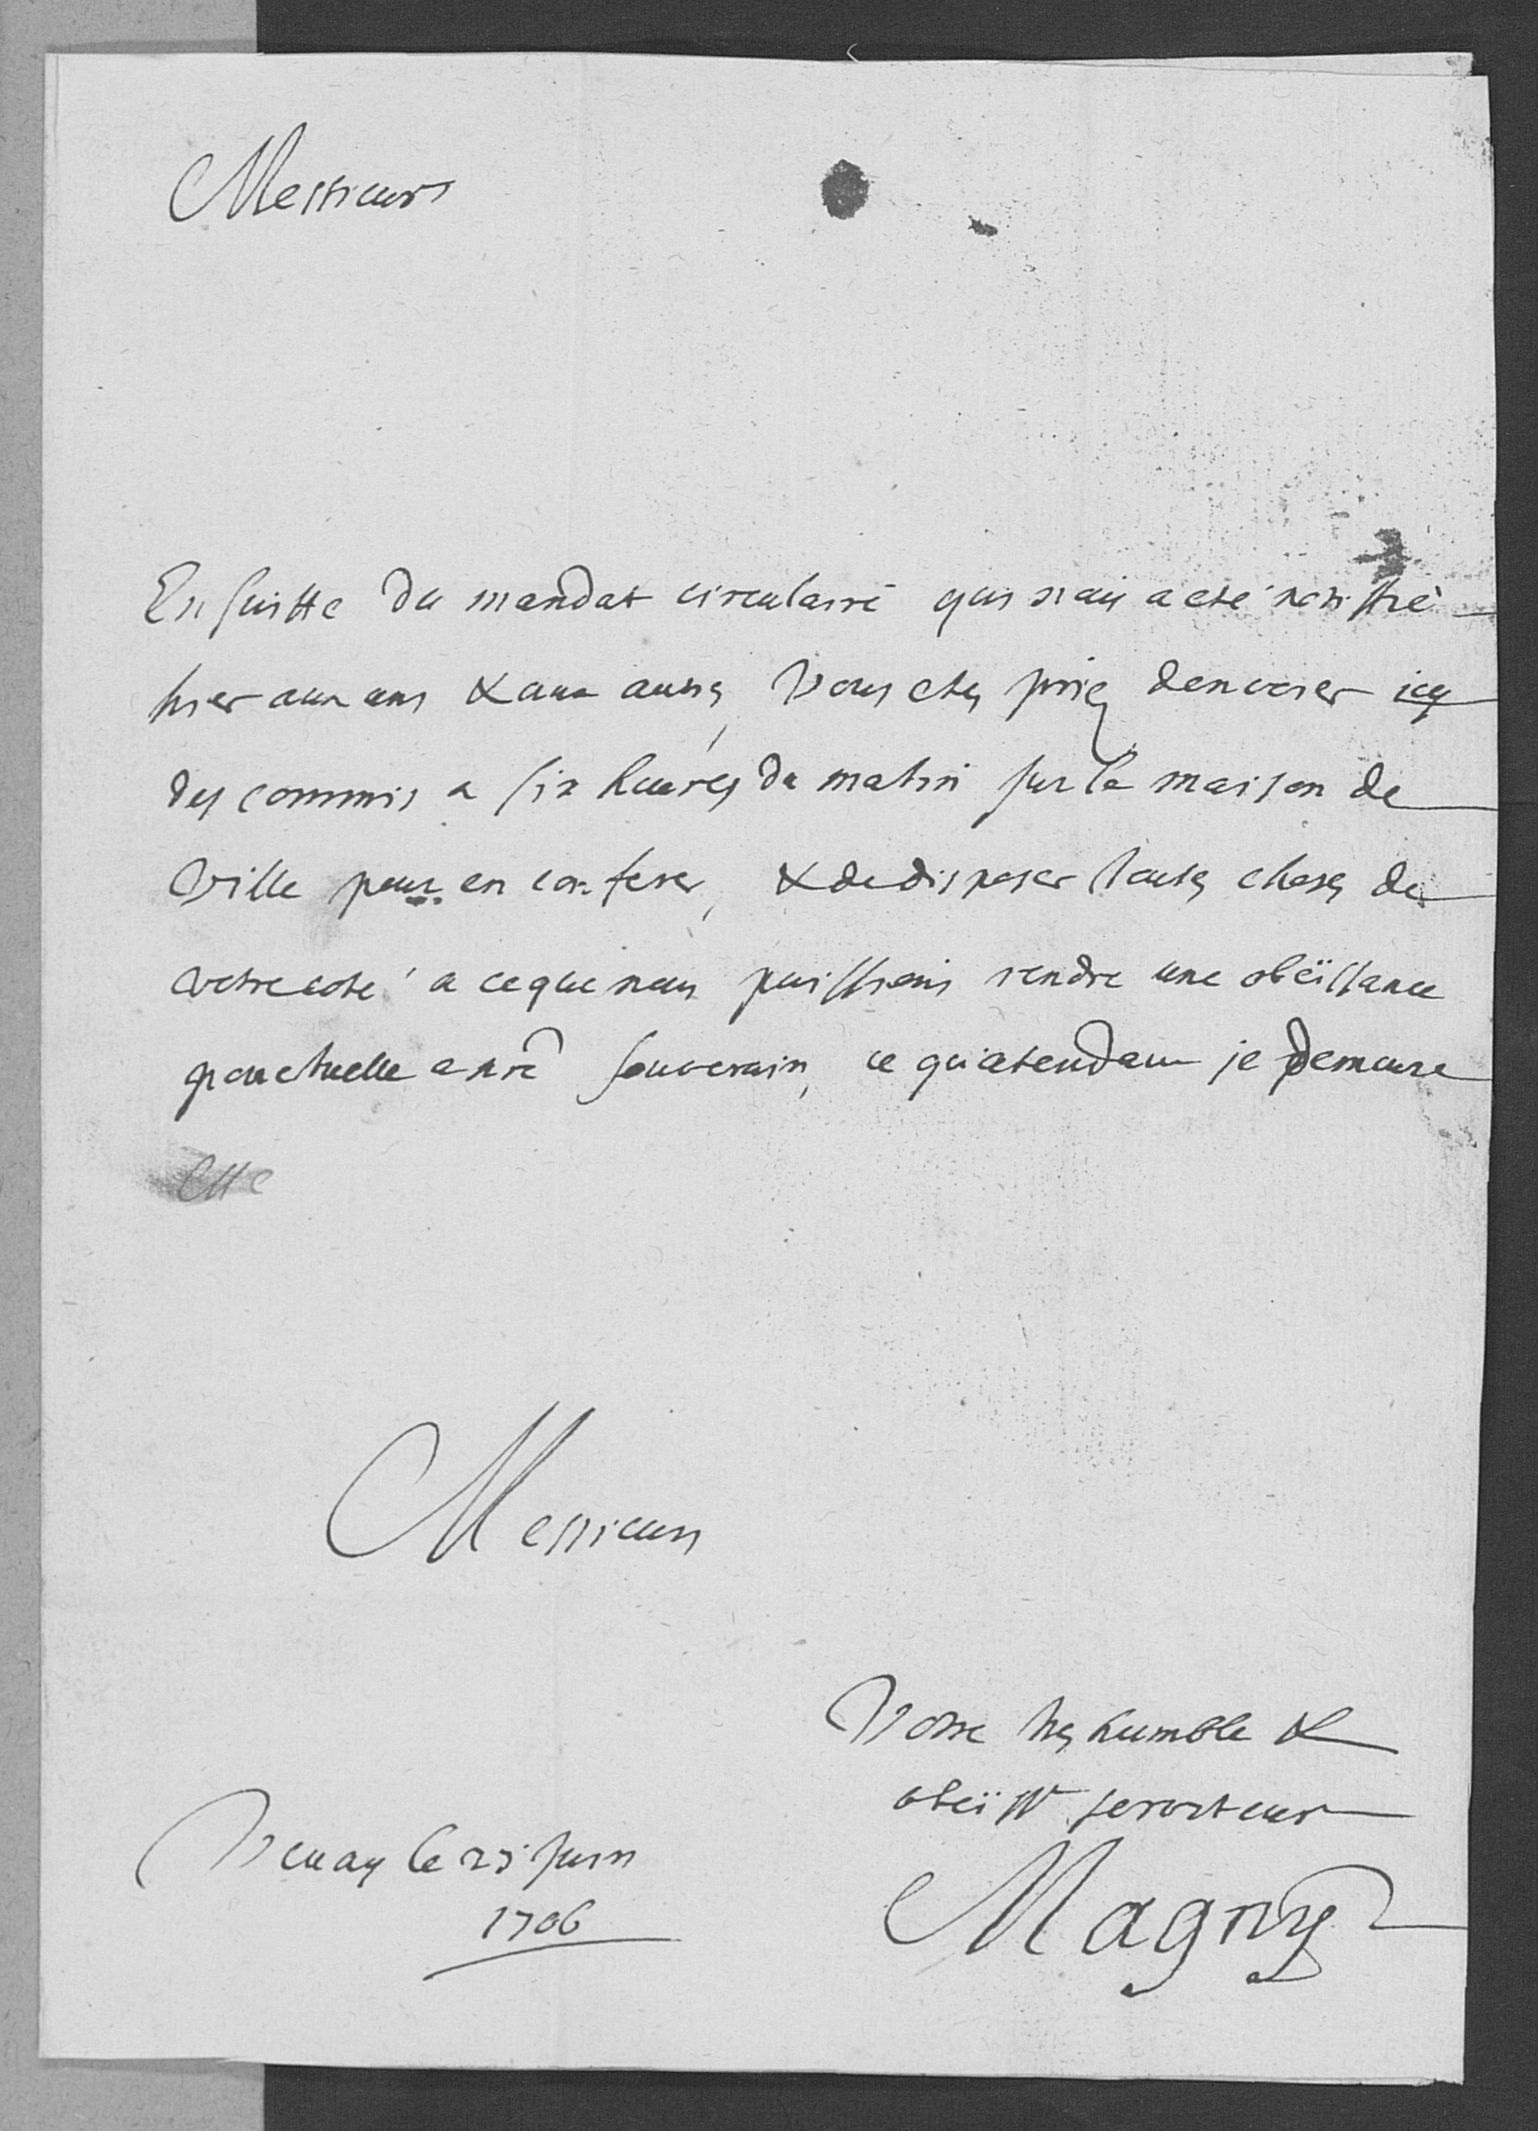 Messieurs
Ensuitte du mandat circulaire qui nous a eté notiffié
hier aux uns & aux autres, Vous etes priez denvoier icy
des commis a six heures du matin sur la maison de
Ville pour en conferer, & de disposer toutes choses de
votre coté a ce que nous puissions rendre une obeïssance
ponctuelle a nre souverain, ce qu'atendant je demeure
Messieurs
Votre tres humble &
obeïsst serviteur
Magny
Vevay le 25 Juin
1706